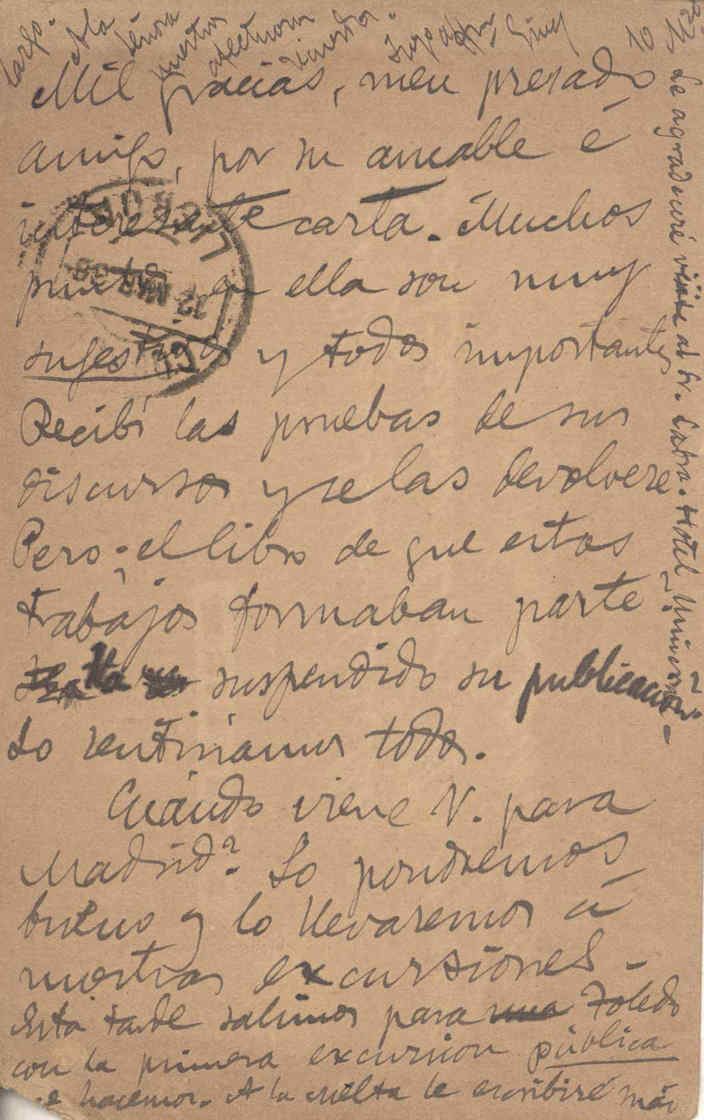 Mil gracias, meu presado
amigo, por su amable é
interesante carta. Muchos
puntos en ella son muy
sugestivos y todos importantes
Recibí las pruebas de sus
discursos y se las devolveré
Pero ¿el libro de que estos
trabajos formaban parte
Ha suspendido su publicacion?
Lo sentiriamos todos.
Cuándo viene V. para
Madrid? Lo pondremos
bueno y lo llevaremos á
nuestras excursiones -
Esta tarde salimos para Toledo
con la primera excursion pública
e hacemos. A la vuelta le escribiré más
largo. A la
señora
nuestros
afectuosos
Suyo affmo
Giner
10
Le agradeceré visite al Sr. Labra. Hotel Universal
LISBOA
12 MAR